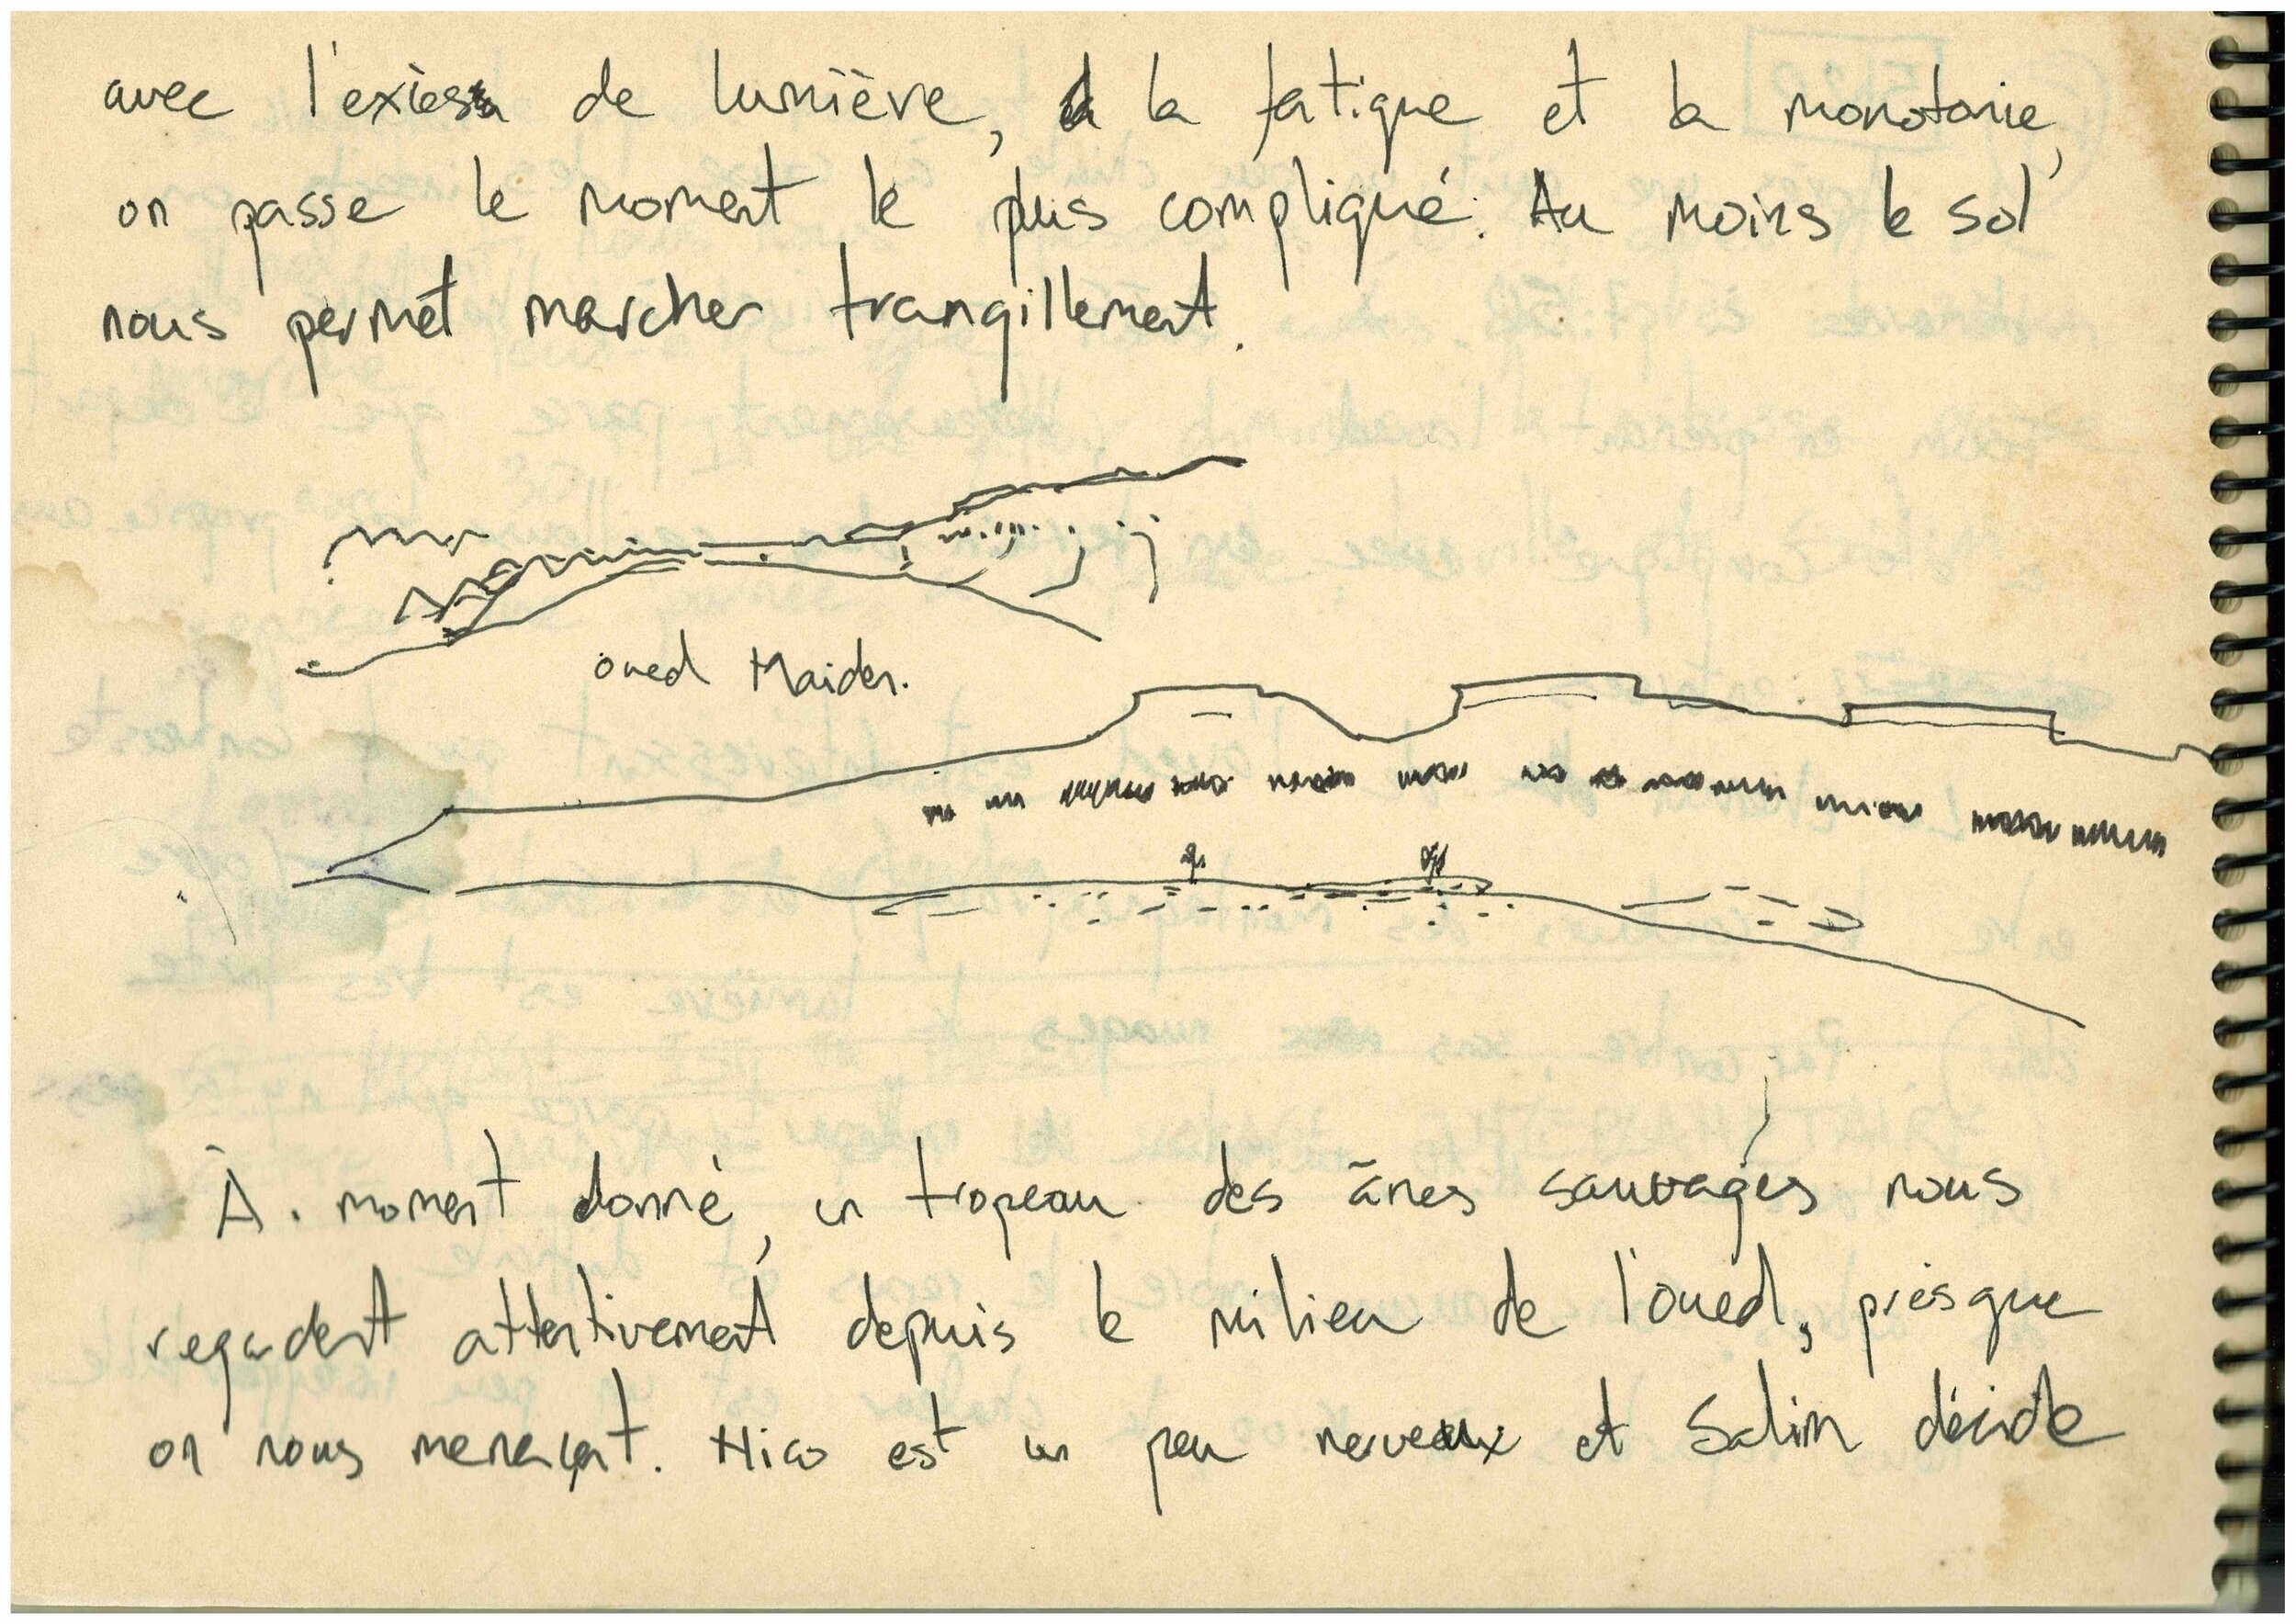 avec l'exièss de lumière, la fatigue et la monotonie,
on passe le moment le plus compliqué. Au moins le sol
nous permet marcher tranqillement.
oued Maider.
À. moment donné, un tropeau des ânes sauvages nous
regardent attentivement depuis le milieu de l'oued, présque
on nous menaçant. Nico est un peu nerveux et Salim décide